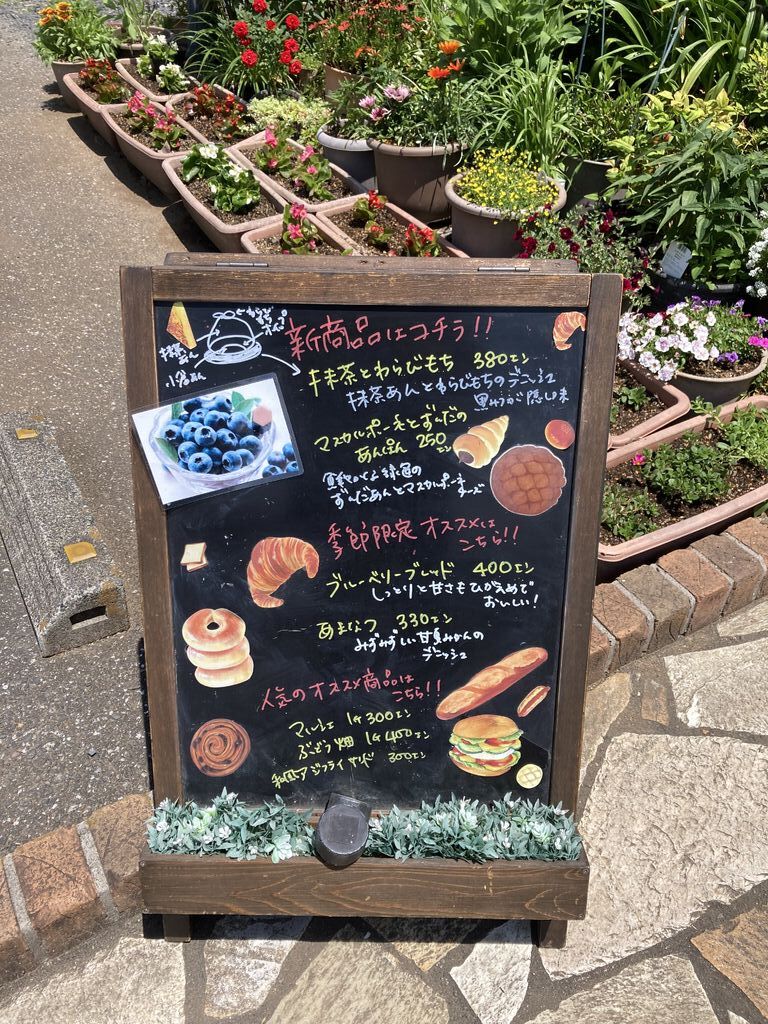 わらび
もち
ホイップ
抹茶
あん
小倉あん
新商品はコチラ!!
抹茶とわらびもち 380エン
抹茶あんとわらびもちのデニッシュ
黒みつが隠し味
マスカルポーネとずんだの
あんぱん 250エン
ずんだあんとマスカルポーネチーズ
季節限定 オススメは
こちら!!
ブルーベリーブレッド 400エン
しっとりと甘さもひかえめで
おいしい!
あまなつ 330エン
みずみずしい甘夏みかんの
デニッシュ
人気のオススメ商品は
こちら!!
マルシェ 1ケ300エン
ぶどう畑 1ケ400エン
和風アジフライサンド 300エン